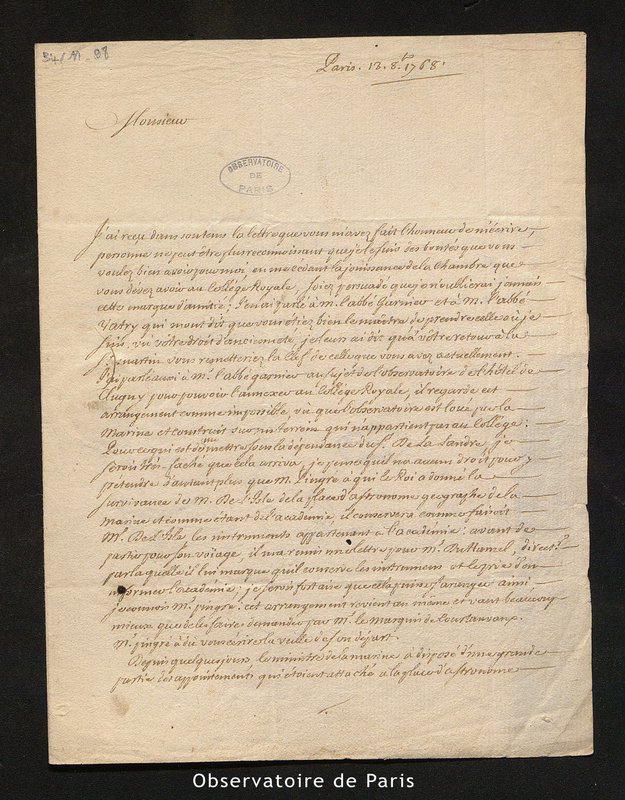 Paris. 13. 8.bre 1768.
Monsieur
OBSERVATOIRE
DE
PARIS
J'ai reçu dans son tems la lettre que vous m'avez fait l'honneur de m'écrire,
personne ne peut être plus reconnoissant que je le suis des bontés que vous
voulez bien avoir pour moi en me cedant la jouissance de la Chambre que
vous désez avoir au Collège Royale, soiez persuadé que je n'oublierai jamais
cette marque d'amitié; j'en ai parlé à M. l'abbé Garnier et à M. l'abbé
Vatry qui m'ont dit que vous étiez bien le maître de prendre celle où je
suis, vu vôtre droit d'ancienneté, je leur ai dit qu'à vôtre retour à la
St martin vous remetteriez la Clef de celle que vous avez actuellement.
J'ai parlé aussi à Mr. l'abbé garnier au sujet de l'observatoire de l'hôtel de
Clugny pour pouvoir l'annexer au Collège Royale, il regarde cet
arrangement comme impossible, vû que l'observatoire est loué par la
Marine et construit sur un terrein qui n'appartient pas au Collège.
Pour ce qui est de me mettre sous la dépendance du Sr. De La Lande, je
serois très-faché que cela arriva, je pense qu'il n'a aucun droit pour y
prétendre d'autant plus que M. Pingré à qui le Roi a donné la
survivance de M. De l'Isle de la place d'astronome geographe de la
marine et comme étant de l'académie, il conservera comme faisoit
Mr. De l'Isle, les instruments appartenant à l'académie: avant de
partir pour son voiage, il m'a remis une lettre pour Mr. Duhamel, direct.r
par laquelle il lui marque qu'il conserve les instrumens et le prie d'en
informer l'académie; je serois fort aise que cela puisse s'arranger ainsi
je connois Mr. pingré: cet arrangement revient au même et vaut beaucoup
mieux que de le faire demander par Mr. le Marquis de Courtanvaux.
Mr. pingré a dû vous écrire la veille de son départ.
Depuis quelques jours, le ministre de la marine a disposé d'une grande
partie des appointements qui étoient attaché à la place d'astronome
Observatoire de Paris